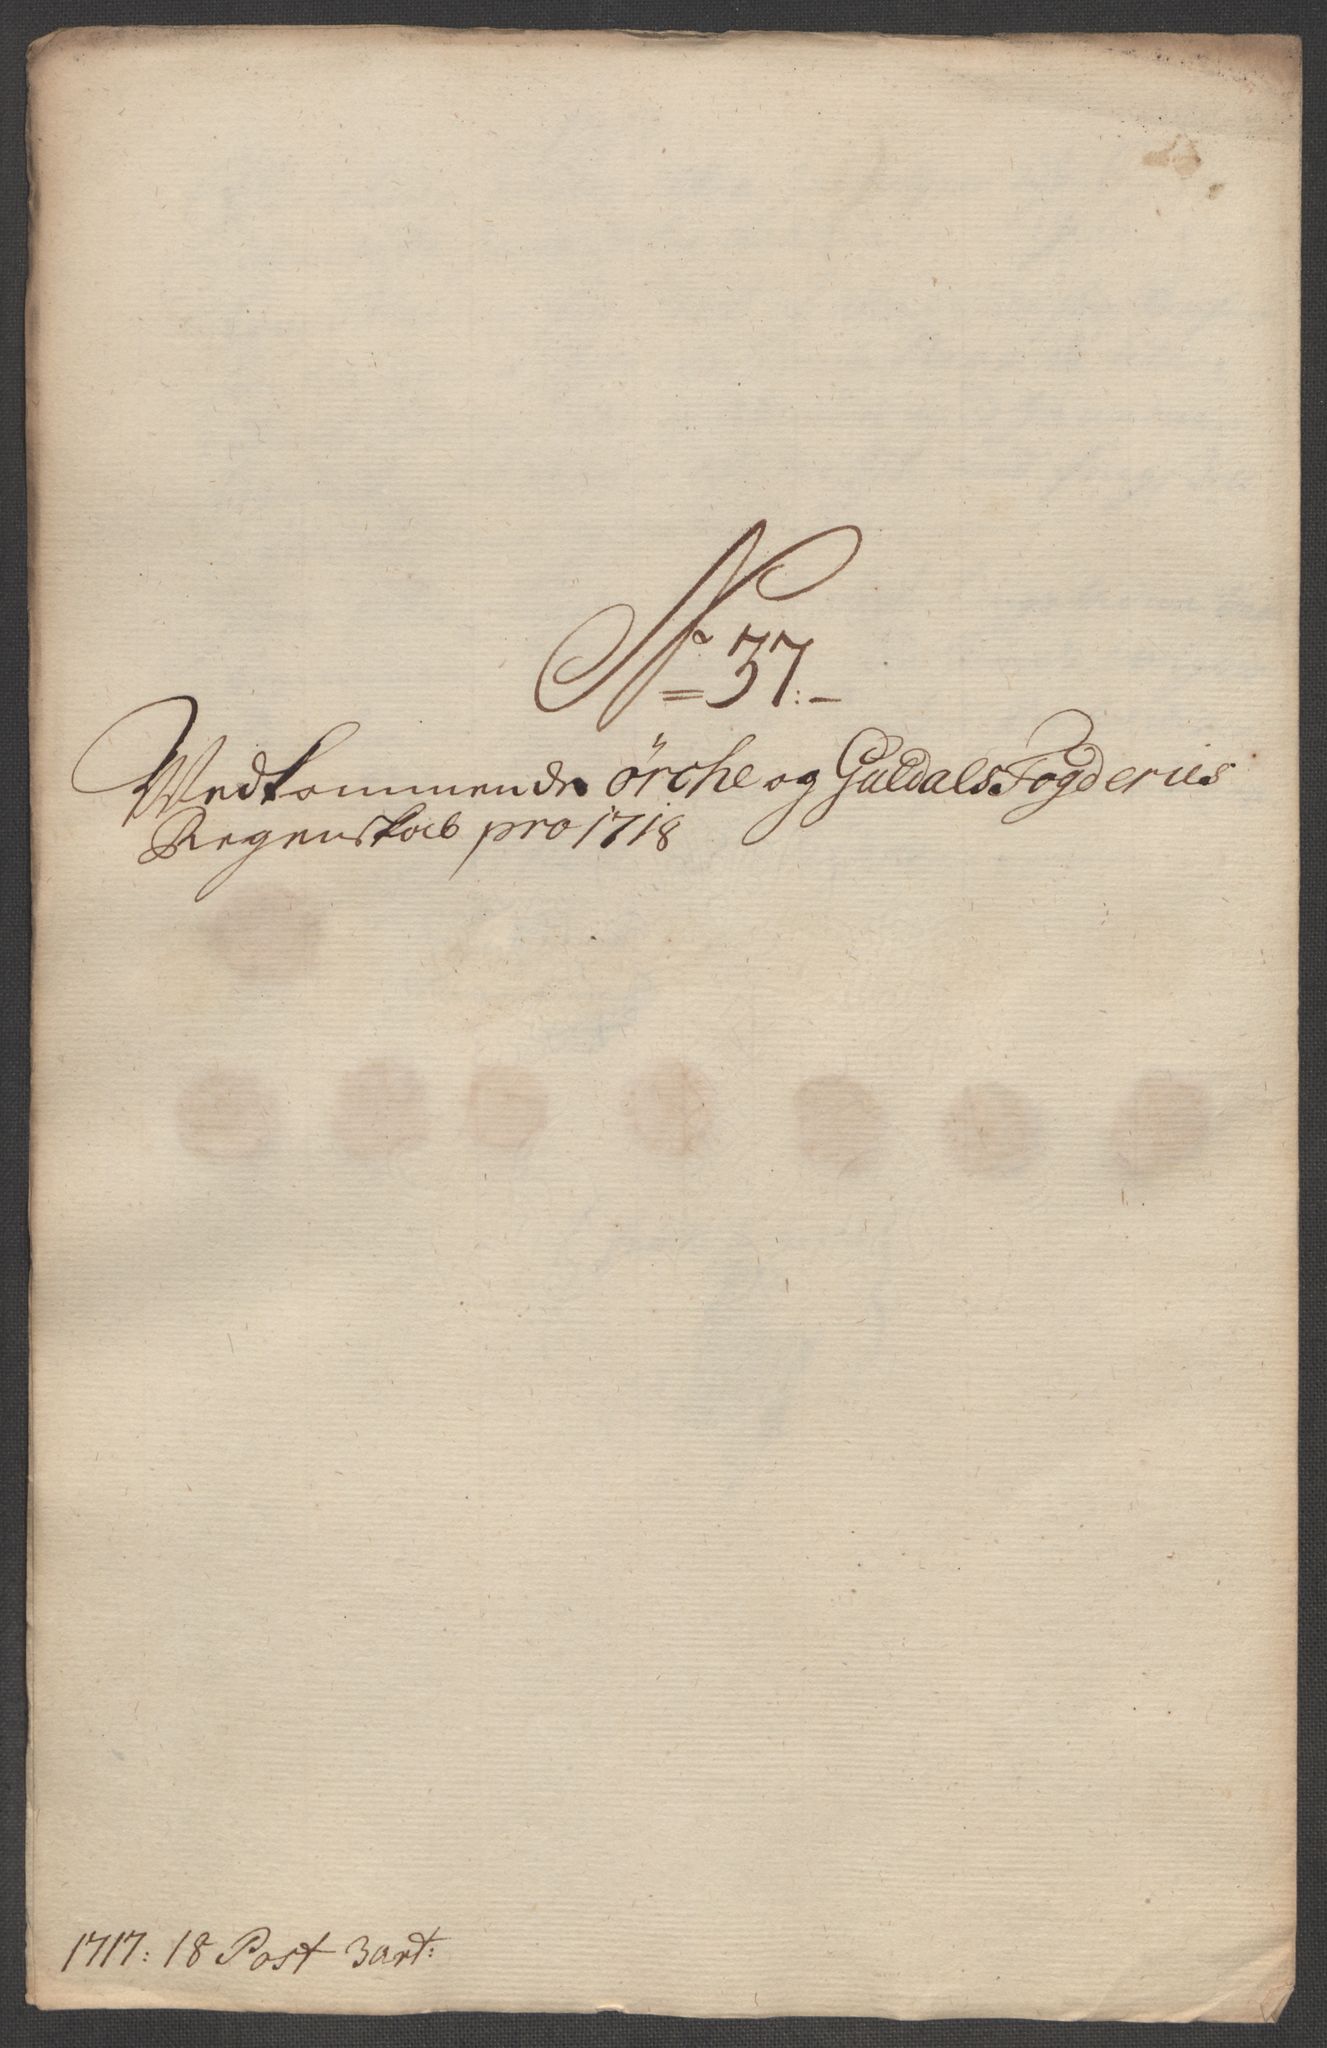 N 37:
Vedkommende örche og Guldals Fogderies
Regenskab pro 1718
1717: 18 Post 3 art: